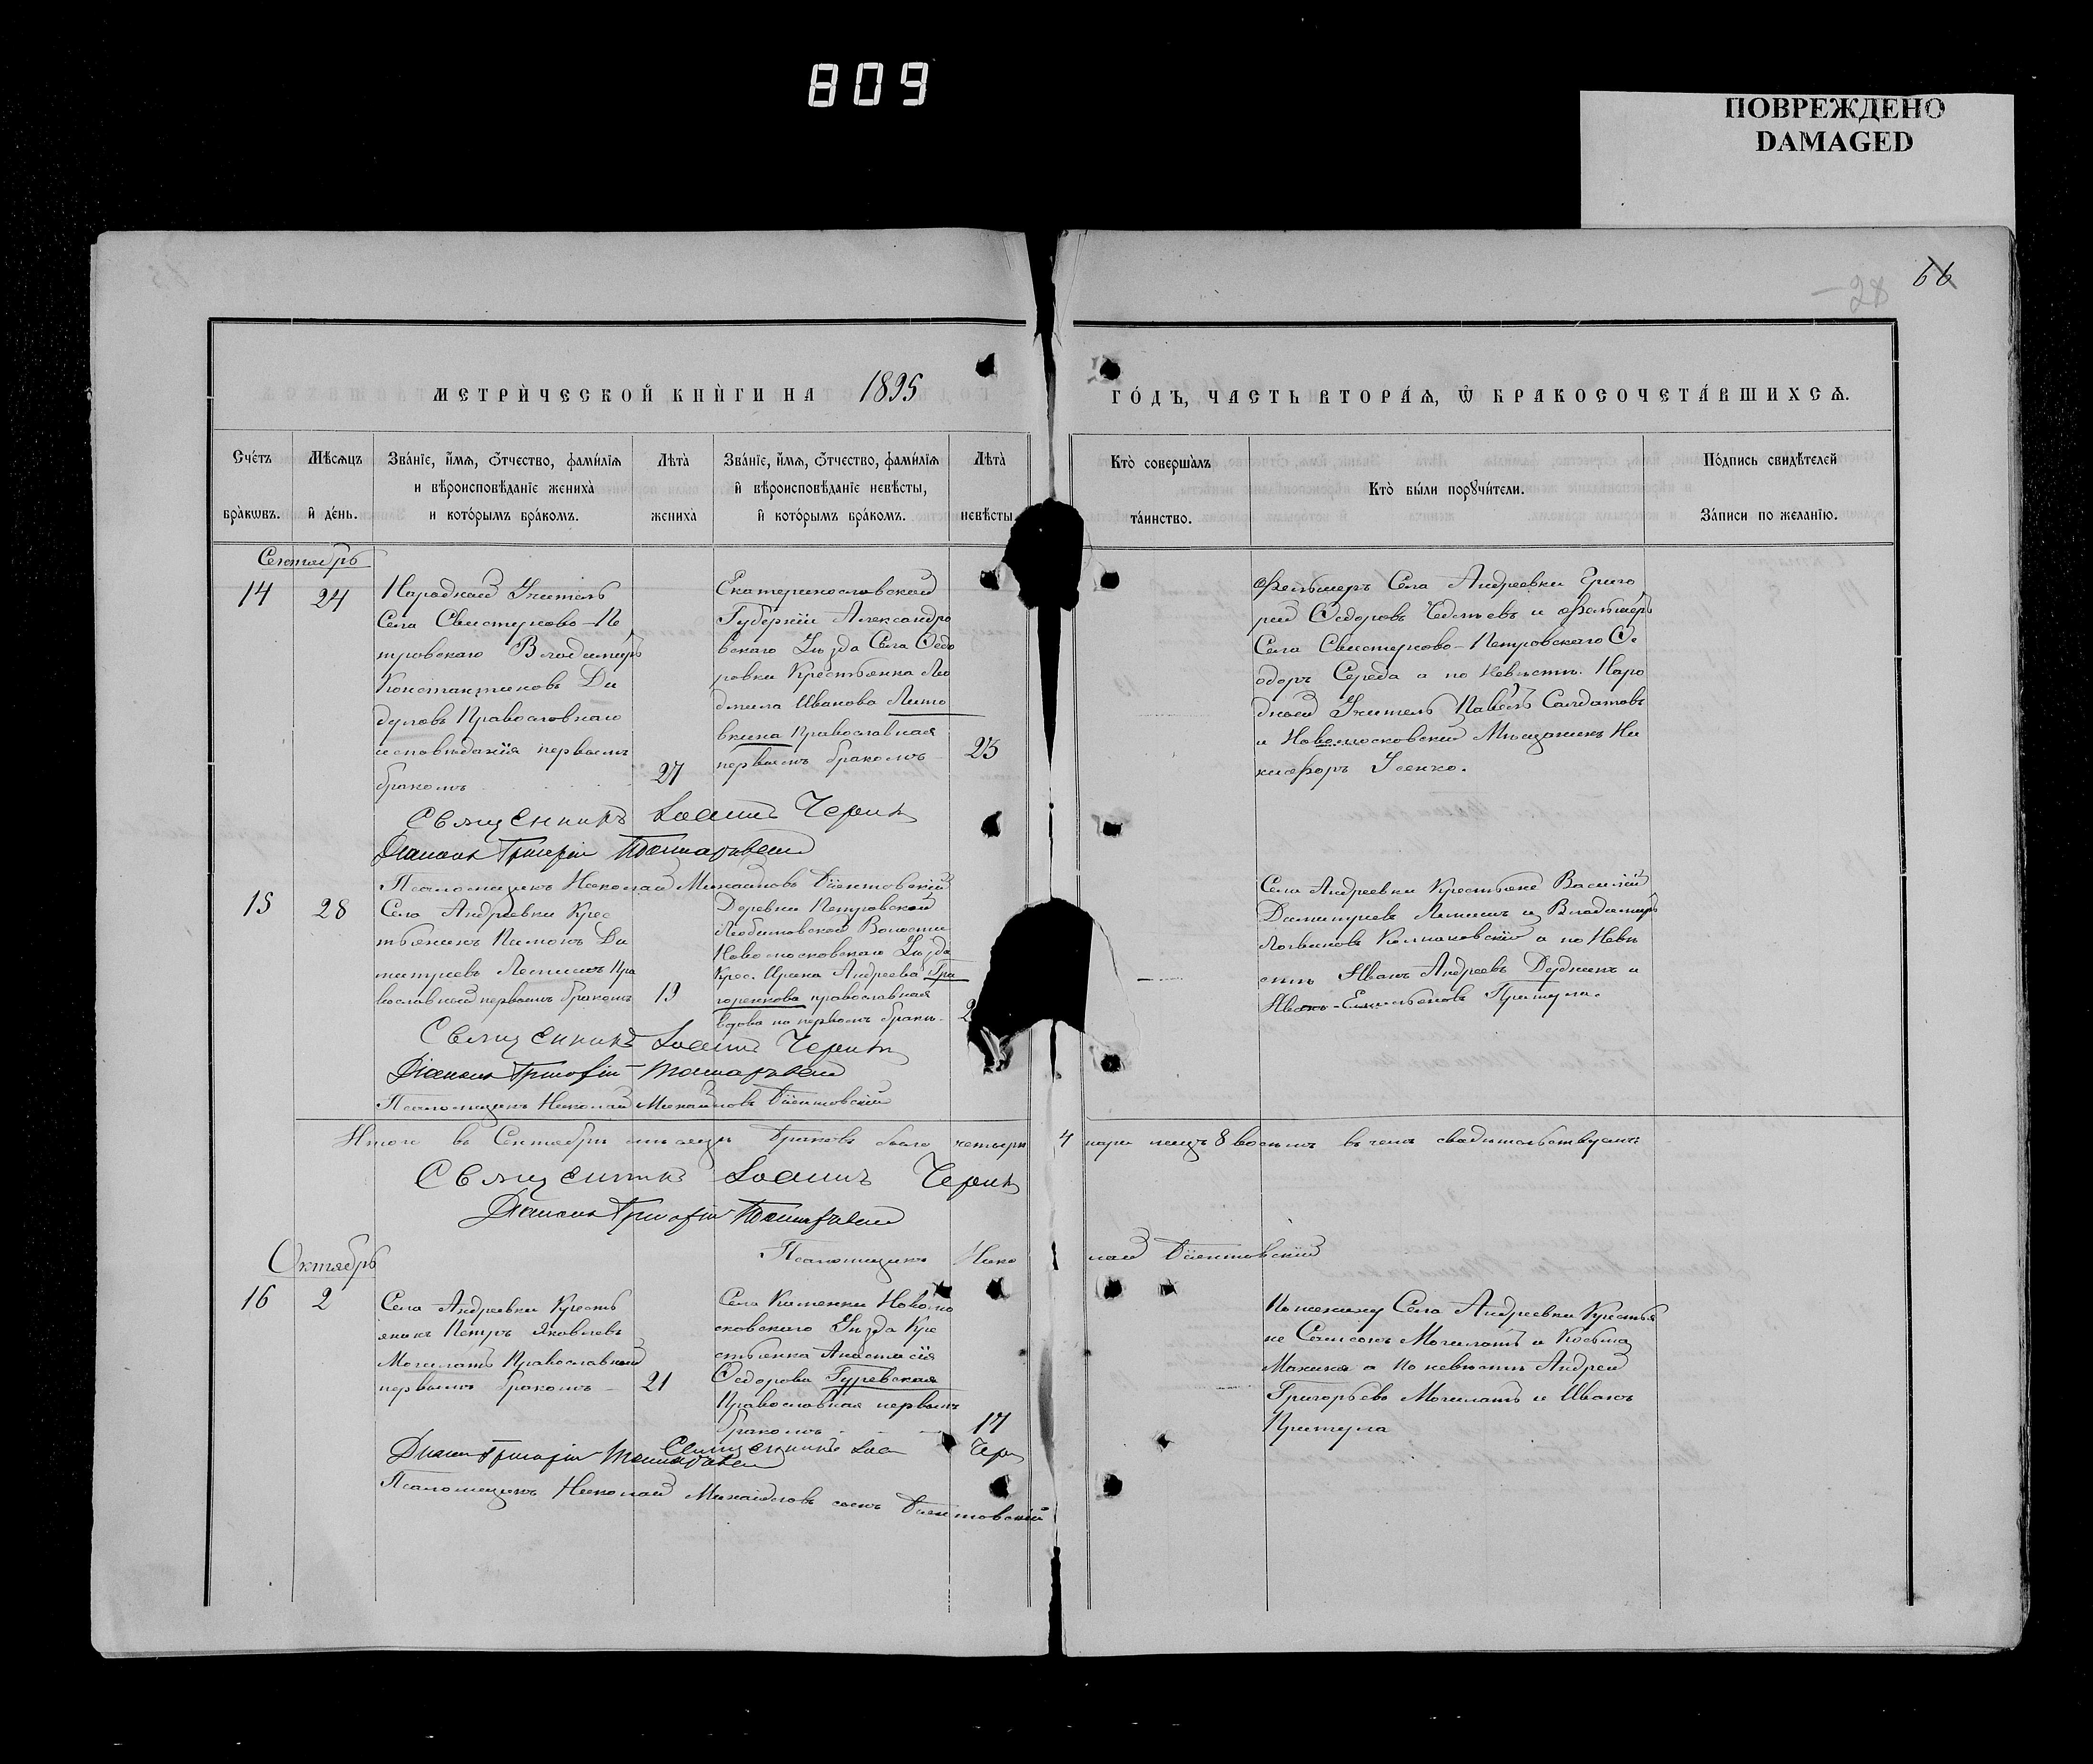 809
ПОВРЕЖДЕНО
DAMAGED
28
66
МЕТРИ́ЧЕСКОЙ КНИ́ГИ НА 1895
ГО́ДЪ, ЧАСТЬ ВТОРА́Ѧ, Ѽ БРАКОСОЧЕТА́ВШИХСѦ.
Сче́тъ бра́кѡвъ.
Мѣ́сѧцъ и҆ де́нь.
Зва́нїе, и҆́мѧ, ѻ҆́тчество, фами́лїѧ
и вѣроисповѣ́данїе жениха̀
и кото́рымъ бра́комъ.
Лѣта̀ жениха̀
Зва́нїе, и҆́мѧ, ѻ҆́тчество, фами́лїѧ
и҆ вѣроисповѣ́данїе невѣ́сты,
и҆ кото́рымъ бра́комъ.
Лѣта̀ невѣ́сты
Кто̀ соверша́лъ та́инство.
Кто̀ бы́ли порꙋчи́тели.
По́дпись свидѣ́телей
За́писи по жела́нїю.
Сентябрь
14
24
Народный Учитель
Села Свистуново-Пе
тровскаго Владимиръ
Константиновъ Ди
Православнаго
исповѣданія первымъ
бракомъ
27
Екатеринославской
Губерніи Александро
вскаго Уѣзда Села Ѳедо
ровки Крестьянка Лю
дмила Иванова Лито
вкина Православная
первымъ бракомъ
23
Фельшеръ Села Андреевки Григо
рій Ѳедоровъ и Фельшеръ
Села Свистуново-Петровскаго Ѳе
одоръ Середа а по Невѣстѣ Наро
дный Учитель Павелъ Солдатовъ
и Новомосковскій Мѣщанинъ Ни
кифоръ Усенко.
Священникъ Іоаннъ
Діаконъ Григорій
Псаломщикъ Николай Михаиловъ
15
28
Села Андреевки Крес
тьянинъ Пименъ Ди
митріевъ Пра
вославный первымъ бракомъ
19
Деревни Петровской
Любимовской Волости
Новомосковскаго Уѣзда
Крес. Ирина Андреева Гри
горенкова православная
вдова по первомъ бракѣ
2
Села Андреевки Крестьяне Василій
Димитріевъ и Владимиръ
Логвиновъ Колпаковскій а по Невѣ
стѣ Иванъ Андреевъ Дудникъ и
Иванъ Емельяновъ Притула.
Священникъ Іоаннъ
Діаконъ Григорій
Псаломщикъ Николай Михаиловъ
Итого въ Сентябрѣ мѣсяцѣ браковъ было четыри 4 пары лицъ 8 восемъ въ чемъ свидѣтельствуемъ:
Священникъ Іоаннъ
Діаконъ Григорій
Псаломщикъ Николай
Октябрь
16
2
Села Андреевки Кресть
янинъ Петръ Яковлевъ
Могилатъ Православный
первымъ бракомъ
21
Села Каменки Новомо
сковскаго Уѣзда Кре
стьянка Анастасія
Ѳедорова Гуревская
Православная первымъ
бракомъ
17
По жениху Села Андреевки Крестья
не Самсонъ Могилатъ и Косьма
Махиня а по невѣстѣ Андрей
Григорьевъ Могилатъ и Иванъ
Притула
Священникъ
Діаконъ Григорій
Псаломщикъ Николай Михаиловъ сынъ